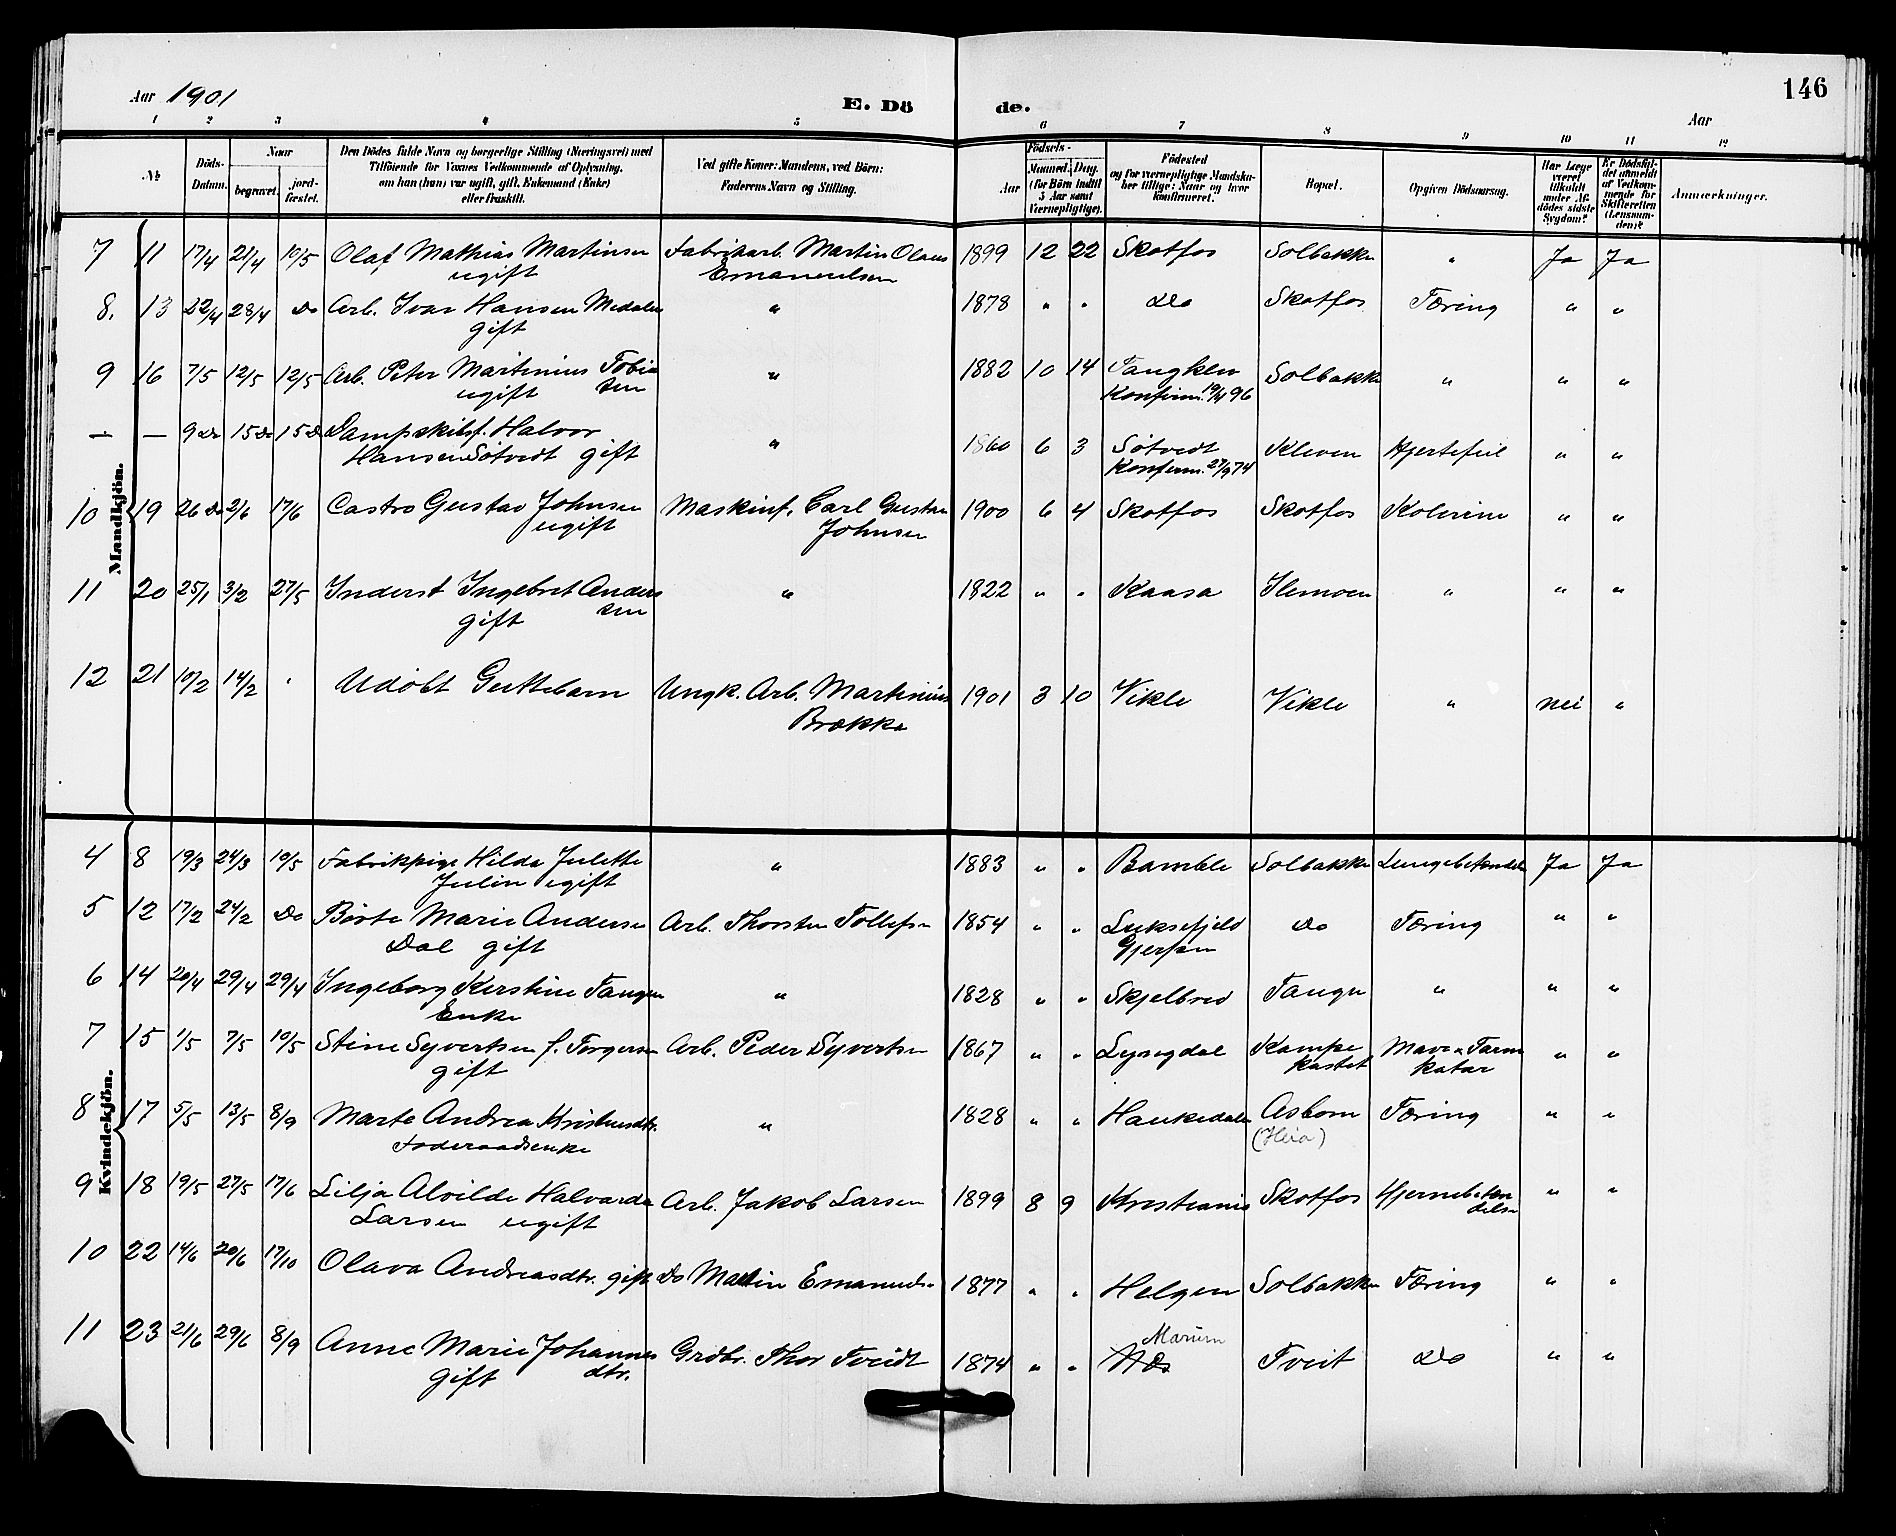 Aar 1901 E. Dö de. 146
Aar
1 2 3 4 5 6 7 8 9 10 11 12
№ Döds-Datum. Naar begravet. jord-fæstet. Den Dödes fulde Navn og borgerlige Stilling (Næringsvei) med Tilföiende for Voxnes Vedkommende af Oplysning, om han (hun) var ugift, gift, Enkemand (Enke) eller fraskilt. Ved gifte Koner: Mandens, ved Börn: Faderens Navn og Stilling. Födsels- Aar Maaned. Dag. (for Börn indtil 5 Aar samt Værnepligtige). Födested og for værnepligtige Mandskaber tillige: Naar og hvor konfirmeret. Bopæl. Opgiven Dödsaarsag. Har Læge været tilkaldt under Afdödes sidste Sygdom? Er Dödsfaldet anmeldt af Vedkommende for Skifteretten (Lensmanden)? Anmærkninger.
Mandkjön.
7 11 17/4 21/4 10/5 Olaf Mathias Martinsen Fabrikarb. Martin Olaus 1899 12 22 Skotfos Solbakken " Ja Ja
ugift Emanuelsen
8. 13 22/4 28/4 Do Arb. Ivar Hansen Medalen " 1878 " " Do Skotfos Tæring " "
gift
9 16 7/5 12/5 12/5 Arb. Peter Martinius Tobia " 1882 10 14 Tangklev Solbakke " " "
ugift sen Konfirm. 19/4 96
— — 9 Do 15 Do 15 Do Dampskibsf. Halvor " 1860 6 3 Søtvedt Kleven Hjertefeil " "
Hansen Søtvedt gift Konfirm. 27/9 74
10 19 26 Do 2/6 17/6 Castro Gustav Johnsen Maskinf. Carl Gustav 1900 6 4 Skotfos Skotfos Kolerine " "
ugift Johnsen
11 20 25/1 3/2 27/5 Inderst Ingebret Anders " 1822 " " Kaasa Ilemoen " " "
gift sen
12 21 10/2 14/2 " Udøbt Guttebarn Ungk. Arb. Martinius 1901 3 10 Vikle Vikle " nei "
Brække
Kvindekjön.
4 8 19/3 24/3 10/5 Fabrikpige Hilda Julette " 1883 " " Bamble Solbakke Lungebetændelse Ja Ja
Julin ugift
5 12 17/2 24/2 Do Børte Marie Andersen Arb. Thorsten Tollefsn 1854 " " Luksefjeld Do Tæring " "
Dal gift Gjerpen
6 14 20/4 29/4 29/4 Ingeborg Kerstine Tangen " 1828 " " Skjelbred Tangen " " "
Enke
7 15 1/5 7/5 10/5 Stine Syvertsen f. Torgersen Arb. Peder Syvertsn 1867 " " Lysegdal Kampe Mave & Tarm " "
gift kastet katar
8 17 5/5 13/5 8/9 Marte Andrea Kristensdtr. " 1828 " " Haukedalen Asbom Tæring " "
Foderaadsenke (Heia)
9 18 19/5 27/5 17/6 Lilja Alvilde Halvarda Arb. Jakob Larsen 1899 8 9 Kristiania Skotfos Hjernebetæn " "
Larsen ugift delse
10 22 14/6 20/6 17/10 Olava Andreasdtr. gift Do Martin Emanuels 1877 " " Helgen Solbakken Tæring " "
11 23 21/6 29/6 8/9 Anne Marie Johannes Grdbr. Thor Tveidt 1874 " " Næs Tveit Do " "
gift dtr.